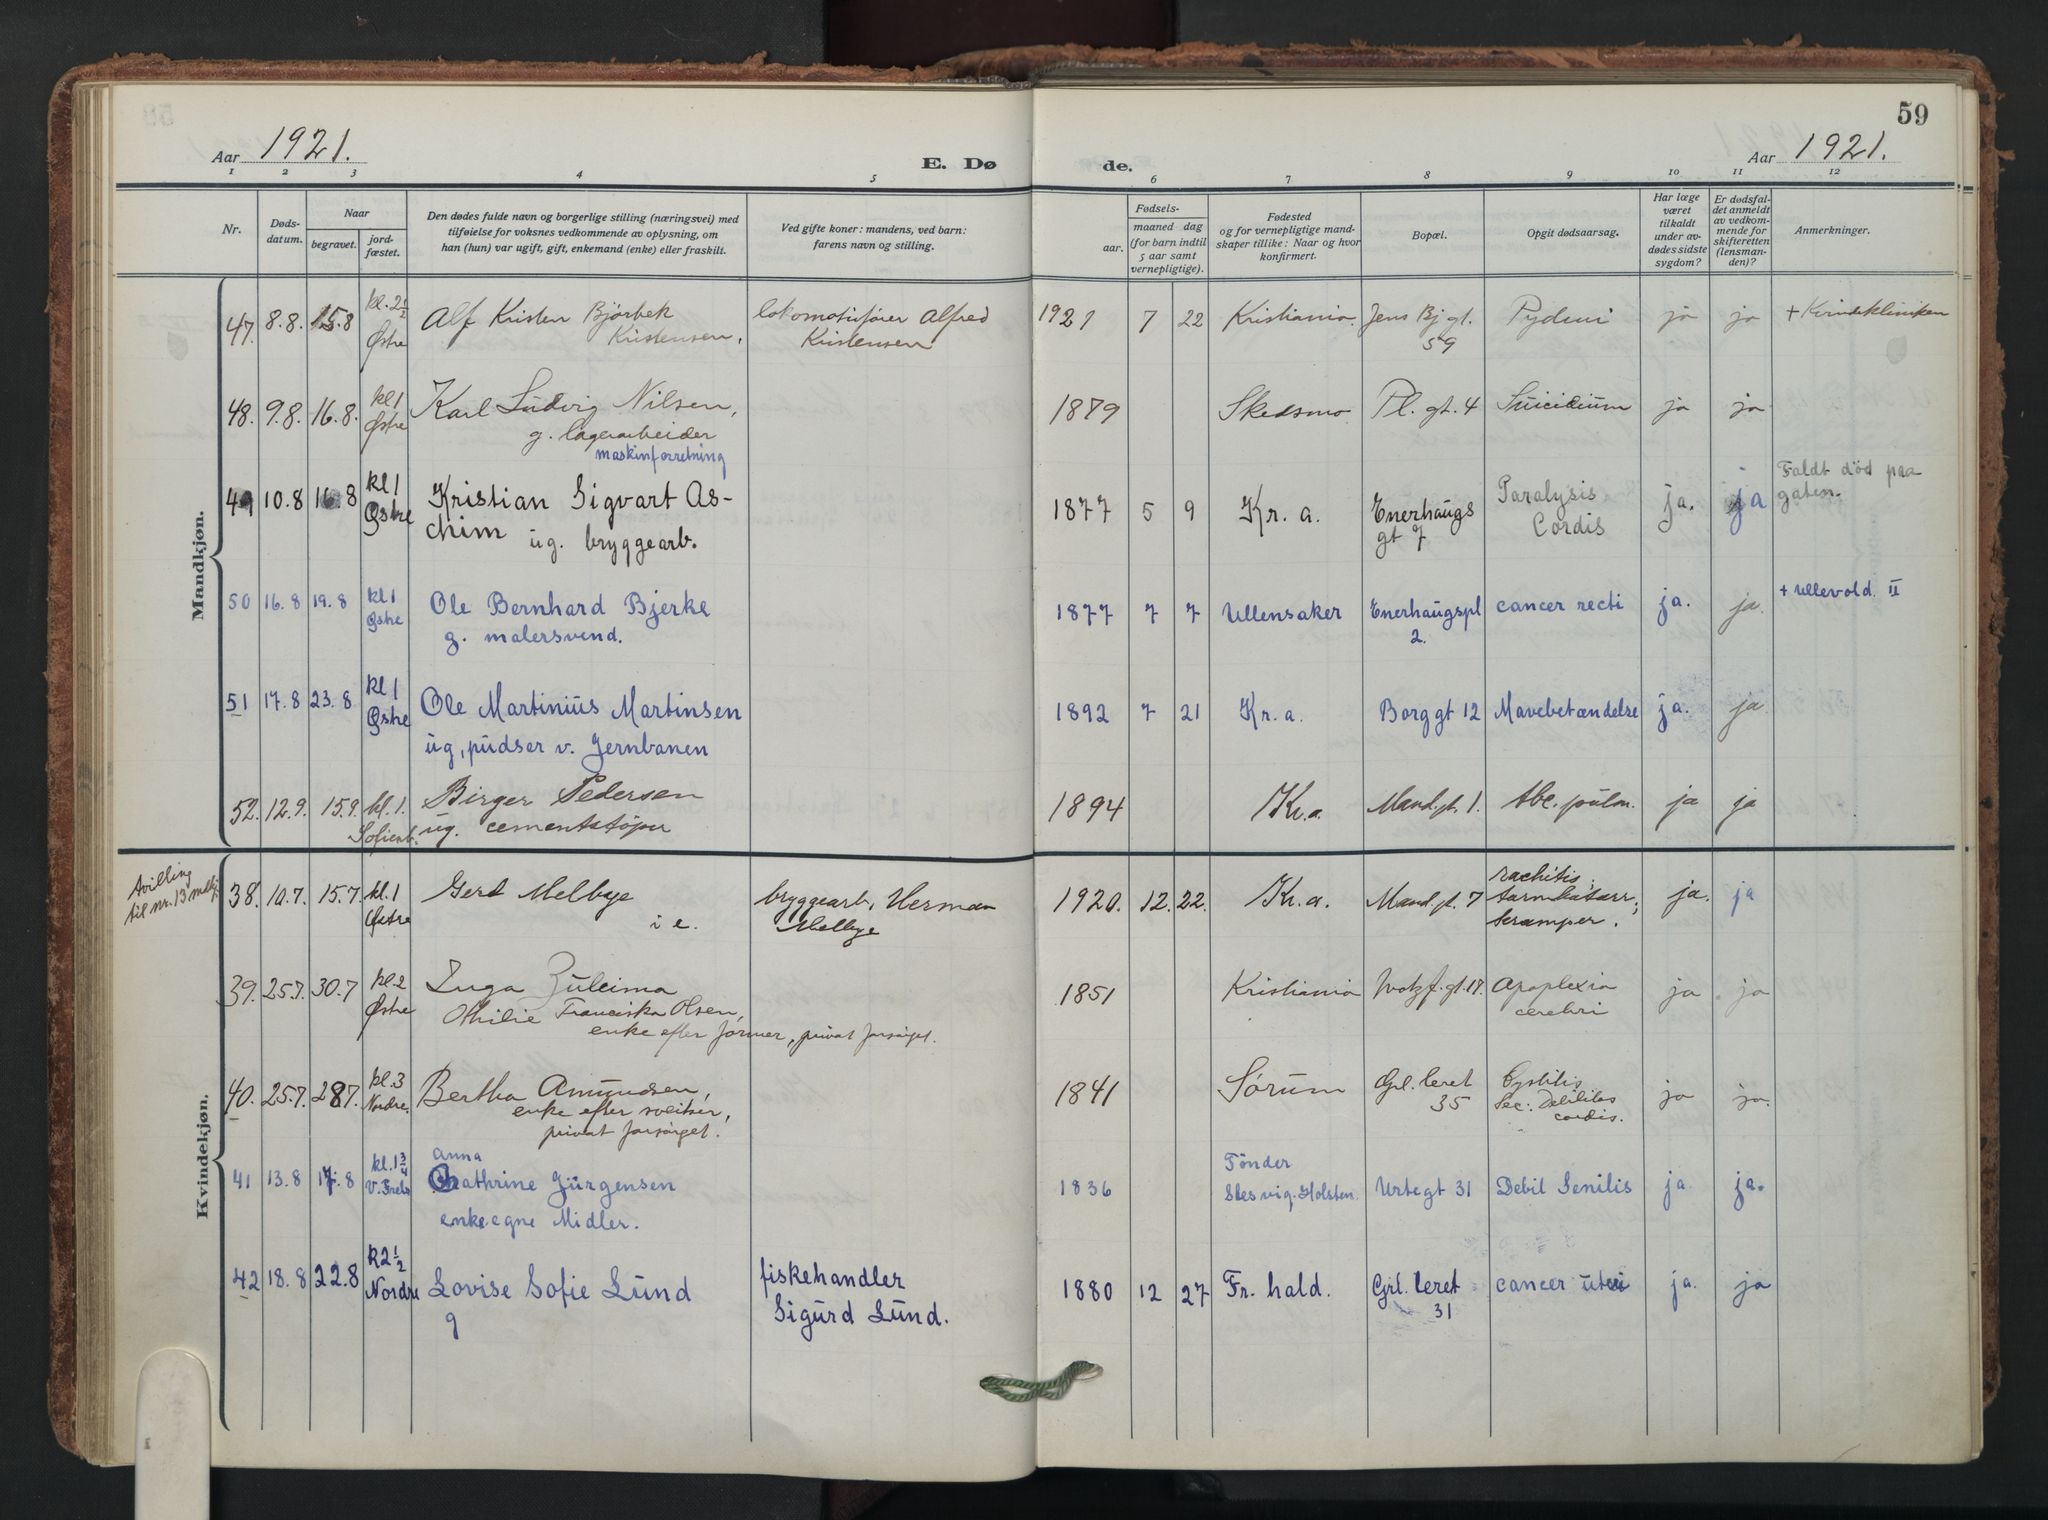 59
Aar 1921.
E. Døde.
Aar 1921.
1 2 3 4 5 6 7 8 9 10 11 12
Nr.
Døds-
datum.
Naar
begravet.
jord-
fæstet.
Den dødes fulde navn og borgerlige stilling (næringsvei) med
tilføielse for voksnes vedkommende av oplysning, om
han (hun) var ugift, gift, enkemand (enke) eller fraskilt.
Ved gifte koner: mandens, ved barn:
farens navn og stilling.
Fødsels-
aar.
maaned dag
(for barn indtil
5 aar samt
vernepligtige).
Fødested
og for vernepligtige mand-
skaper tillike: Naar og hvor
konfirmert.
Bopæl.
Opgit dødsaarsag.
Har læge
været
tilkaldt
under av-
dødes sidste
sygdom?
Er dødsfal-
det anmeldt
av vedkom-
mende for
skifteretten
(lensman-
den)?
Anmerkninger.
Mandkjøn.
47. 8.8. 15.8 kl. 2½ Østre Alf Kristen Bjørbek lokomotivfører Alfred 1921 7 22 Kristiania. Jens Bj. gt. ja ja + Kvindekliniken
Kristensen, Kristensen 59
48. 9.8. 16.8. kl 1 Østre Karl Ludvig Nilsen, 1879 Skedsmo Pl. gt. 4 Suicidium ja ja
g. lagerarbeider
maskinforretning
49 10.8 16.8 kl 1 Østre Kristian Sigvart As- 1877 5 9 Kr. a. Enerhaugs Paralysis ja. ja Faldt død paa
chim ug. bryggearb. gt 7 Cordis gaten.
50 16.8 19.8 kl 1 Østre Ole Bernhard Bjerke 1877 7 7 Ullensaker Enerhaugspl cancer recti ja. ja. + Ullevold II
g. malersvend. 2.
51 17.8 23.8 kl 1 Østre Ole Martinius Martinsen 1892 7 21 Kr. a. Borg gt 12 Mavebetændelse ja. ja
ug, pudser v. Jernbanen
52. 12.9. 15.9. kl. 1. Sofienb. Birger Pedersen 1894 Kr. a. Mand. gt. 1. tbc. pulm. ja ja
ug. cementstøper
Kvindekjøn.
tvilling
til nr. 13 mdkj.
38. 10.7. 15.7. kl. 1 Østre Gerd Melbye bryggearb. Herman 1920. 12. 22. Kr. a. Mand. gt. 7 rachitis; ja. ja
i e. Melbye tarmkatarr;
kramper.
39. 25.7. 30.7 kl. 2 Østre Inga Zuleima 1851 Kristiania gt. 17. Apoplexia ja ja
Othilie Franciska Olsen, cerebri
enke efter former, privat forsørget.
40. 25.7. 28.7. kl. 3 Nordre. Bertha Amundsen, 1841 Sørum Grl. leret Cystitis ja ja.
enke efter sveitser, 35 Sec: Debilitas
privat forsørget. cordis.
41 13.8 17.8 kl. 1¾ V. Frels Anna Tønder
Chathrine Jürgensen 1836 Slesvig-Holsten. Urtegt 31 Debil Senilis ja ja.
enke egne Midler.
42 18.8 22.8 k2½ Nordre Lovise Sofie Lund fiskehandler 1880 12 27 Fr. hald. Grl. leret cancer uteri ja. ja
g Sigurd Lund. 31